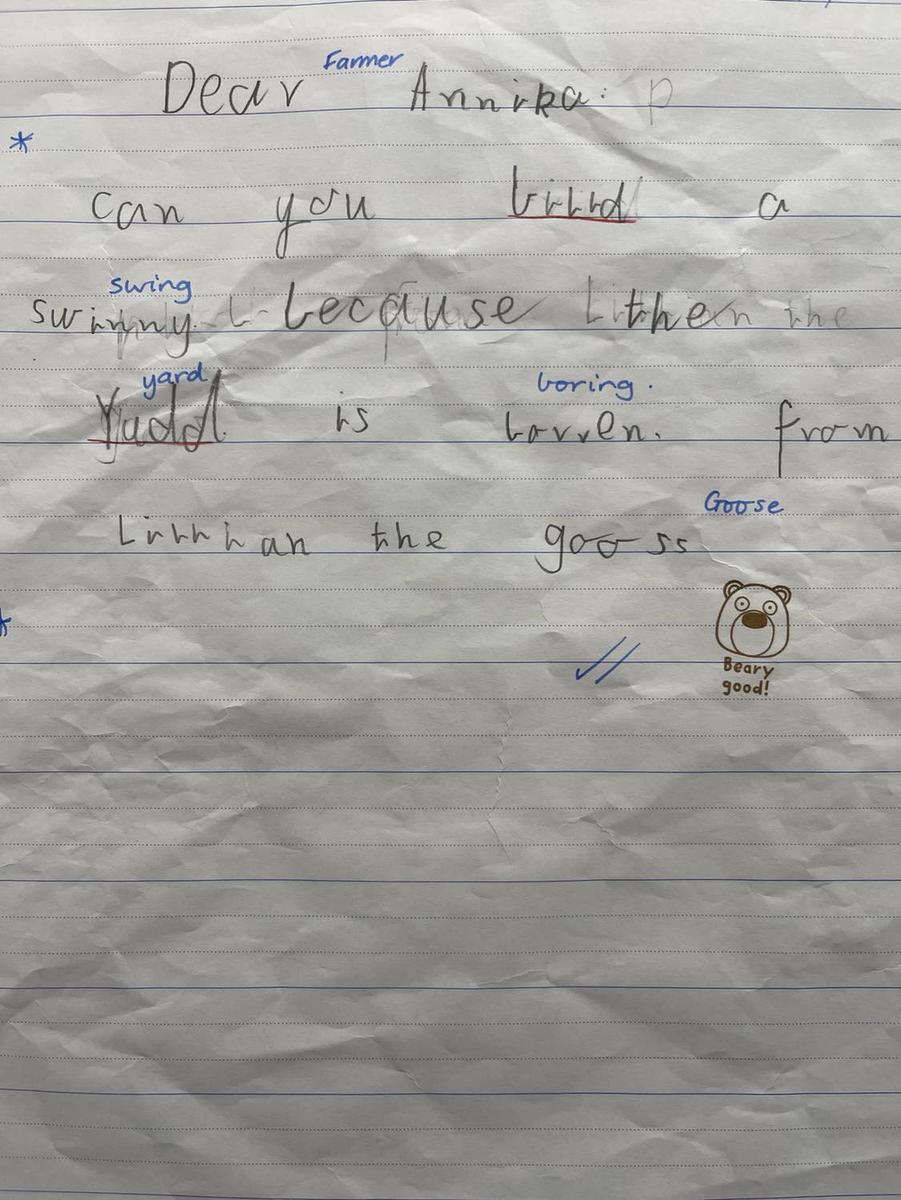 Farmer
Dear Annika.
*
can you biild a
swing
swinny because the
yard boring.
Yudd is borren. from
Goose
Lillian the gooss
Beary
good!